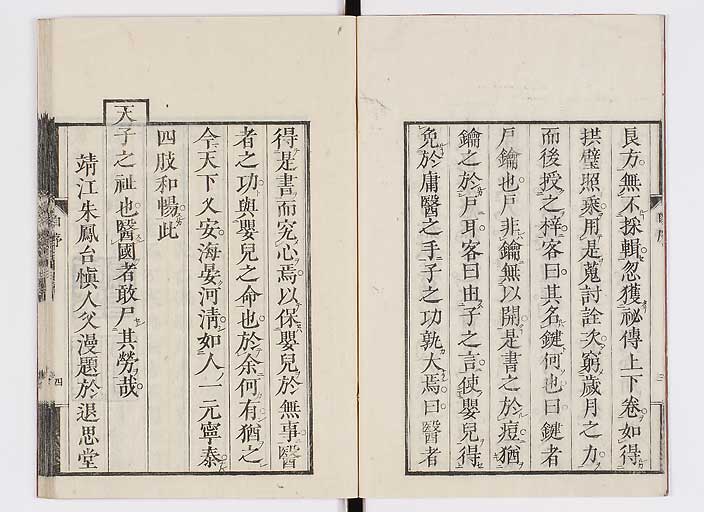 良方無不採輯忽獲祕傳上下卷如得
拱璧照乘用是蒐討詮次窮歲月之力
而後授之梓客曰其名鍵何也曰鍵者
戶鑰也戶非鑰無以開是書之於痘猶
鑰之於戶耳客曰由子之言使嬰兒得
免於庸醫之手子之功孰大焉曰醫者
得是書而究心焉以保嬰兒於無事醫
者之功與嬰兒之命也於余何有猶之
今天下乂安海晏河清如人一元寧泰
四肢和暢此
天子之祉也醫國者敢尸其勞哉
靖江朱鳳台慎人父漫題於退思堂
自序
四